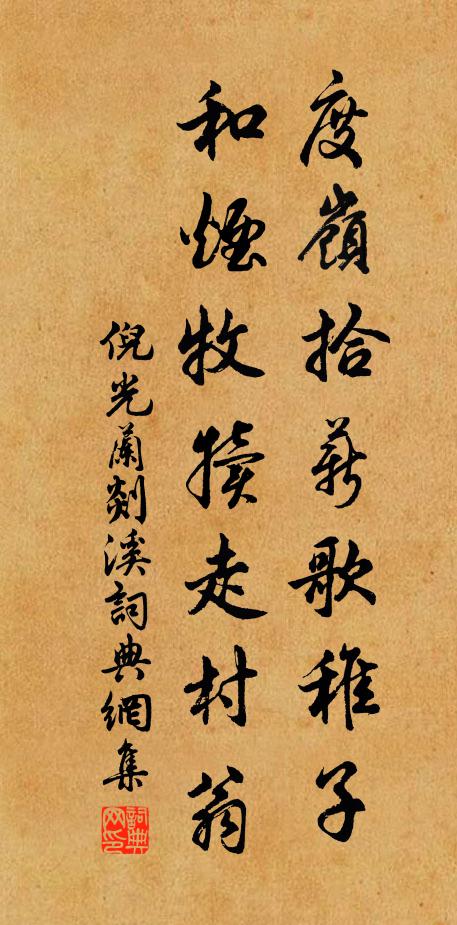 度嶺拾薪歌稚子
和煙牧犢走村翁
倪光蘭剡溪詞典網集
詞典网印